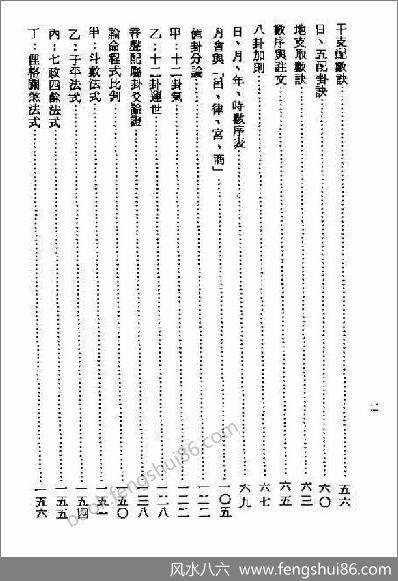 干支配數訣……五六
日、五配卦訣……六〇
地支取數訣……六三
數序與註文……六五
八卦加則……六七
日、月、年、時數序表……六九
月會與「呂、律、宮、商」……一〇五
值卦分論……一二二
甲:十二卦氣……一二二
乙:十二卦運世……一二八
配屬卦爻論證……一三八
論命程式比例……一五〇
甲:斗數法式……一五一
乙:子平法式……一五四
丙:七政四餘法式……一五五
丁:格闢煞法式……一五六
二
book.fengshui86.com
风水八六 www.fengshui86.com